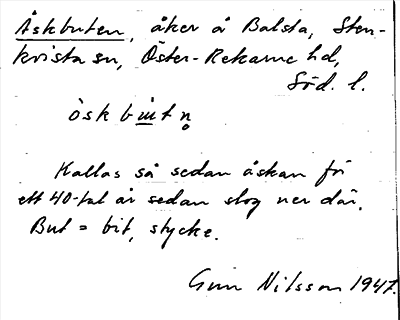 Åskbuten, åker å Balsta, Sten-
kvista sn, Öster-Rekarne hd,
Söd. l.
ȯsk bu̇t n̥
Kallas så sedan åskan för
ett 40-tal år sedan slog ner där.
But = bit, stycke.
Gun Nilsson 1947.